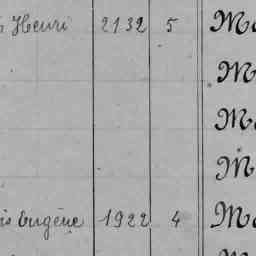 Henri 2132 5 M
M
M
M
Eugène 1922 4 M